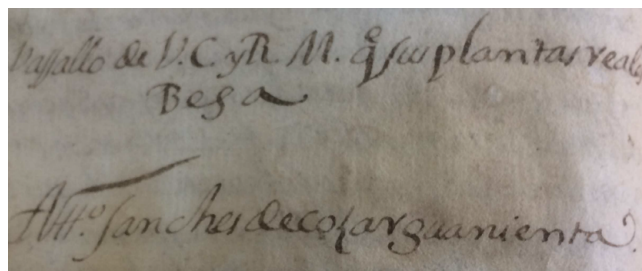 Vassallo de V. C. y R. M. q̃ sus plantas reales
Besa
Antt.º Sanches de coçar guanienta